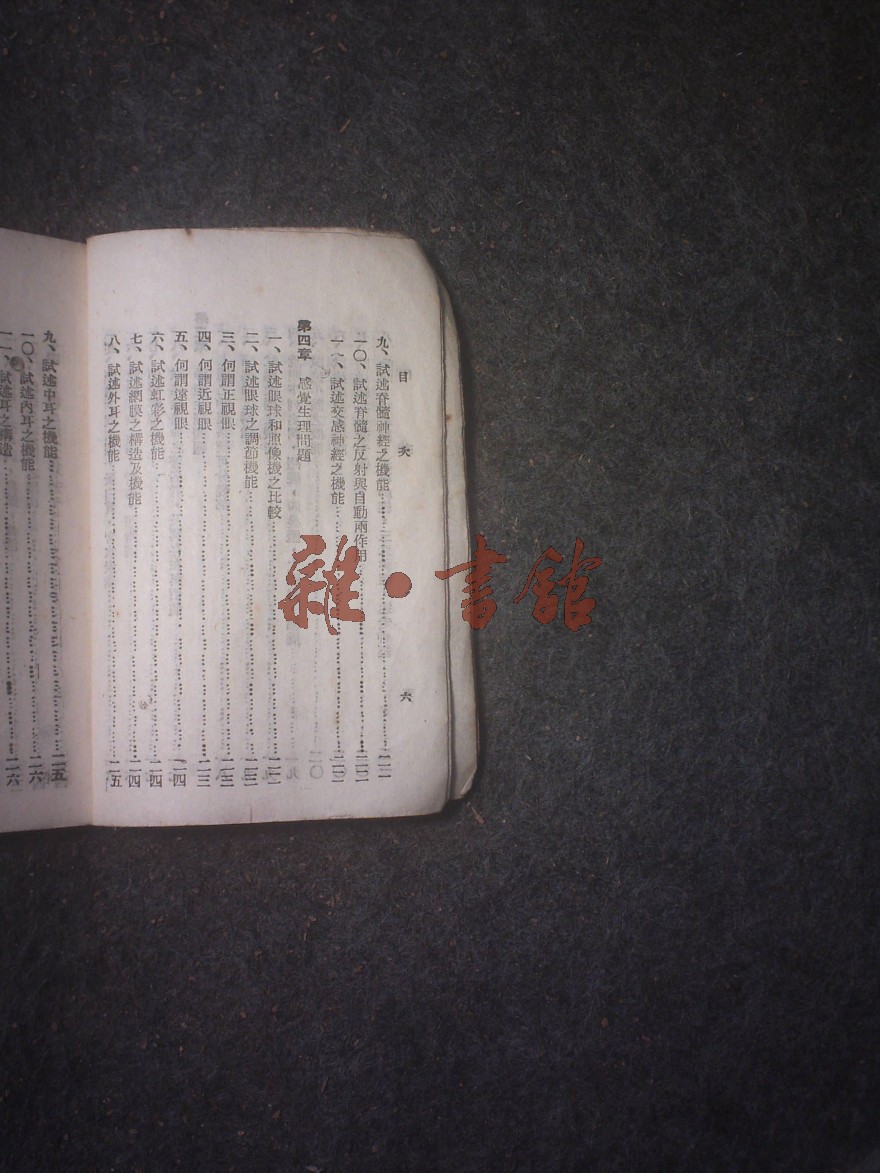 目次 六
九、試述脊髓神經之機能……二二
一〇、試述脊髓之反射與自動兩作用……二二
一一、試述交感神經之機能……二二
第四章 感覺生理問題
一、試述眼球和照像機之比較……二二
二、試述眼球之調節機能……二三
三、何謂正視眼……二三
四、何謂近視眼……二三
五、何謂遠視眼……二四
六、試述虹彩之機能……二四
七、試述網膜之構造及機能……二四
八、試述外耳之機能……二五
九、試述中耳之機能……二五
一〇、試述內耳之機能……二六
一一、試述耳之構造……二六
雜·書館